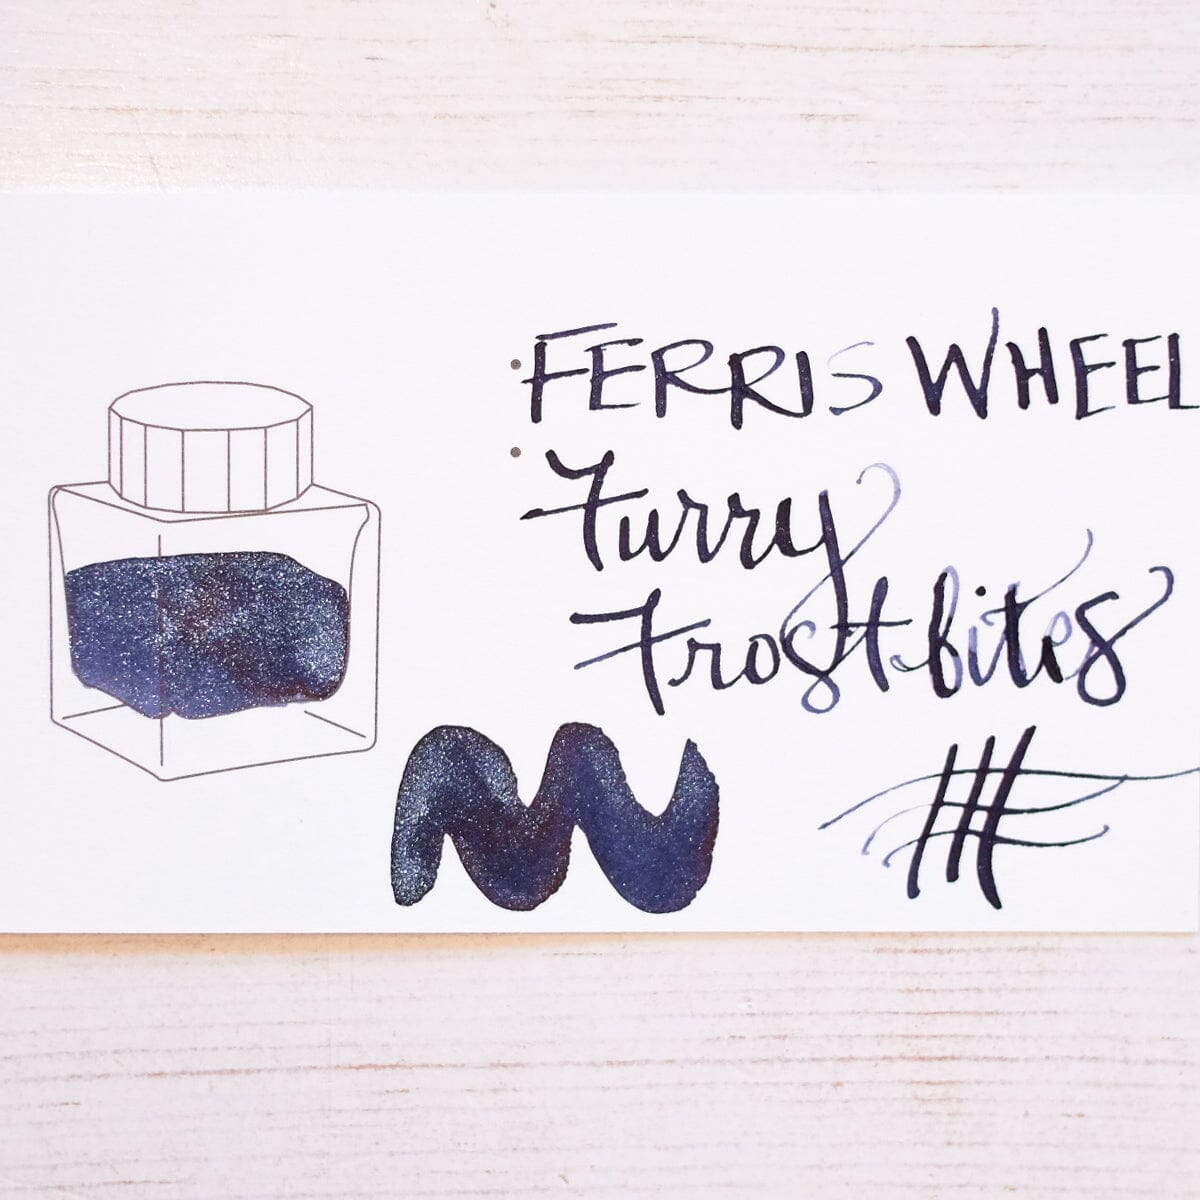 FERRIS WHEEL
Furry
Frostbites